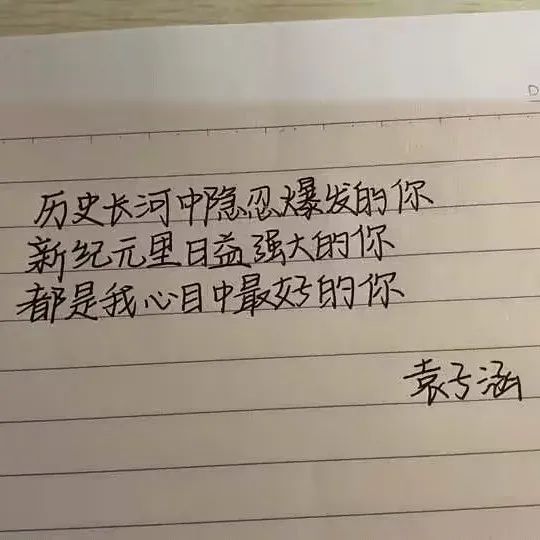 历史长河中隐忍爆发的你
新纪元里日益强大的你
都是我心目中最好的你
袁子涵
D